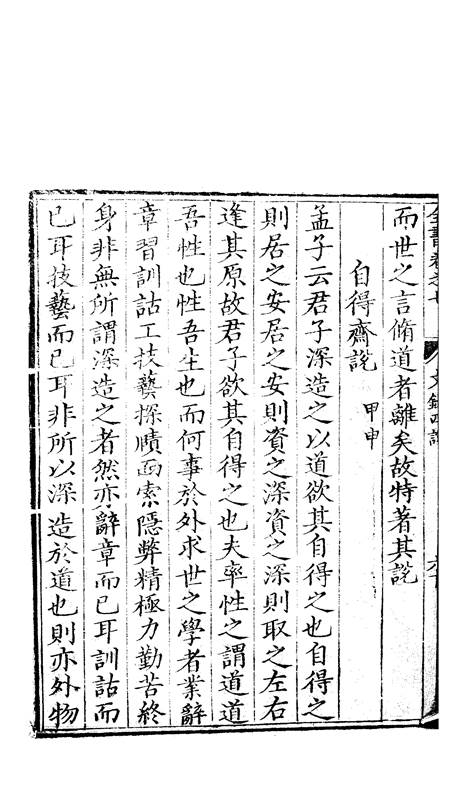 全書卷之七
文錄四說
而世之言脩道者離矣故特著其說
自得齋說 甲申
孟子云君子深造之以道欲其自得之也自得之
則居之安居之安則資之深資之深則取之左右
逢其原故君子欲其自得之也夫率性之謂道道
吾性也性吾生也而何事於外求世之學者業辭
章習訓詁工技藝探賾而索隱弊精極力勤苦終
身非無所謂深造之者然亦辭章而已耳訓詁而
已耳技藝而已耳非所以深造於道也則亦外物